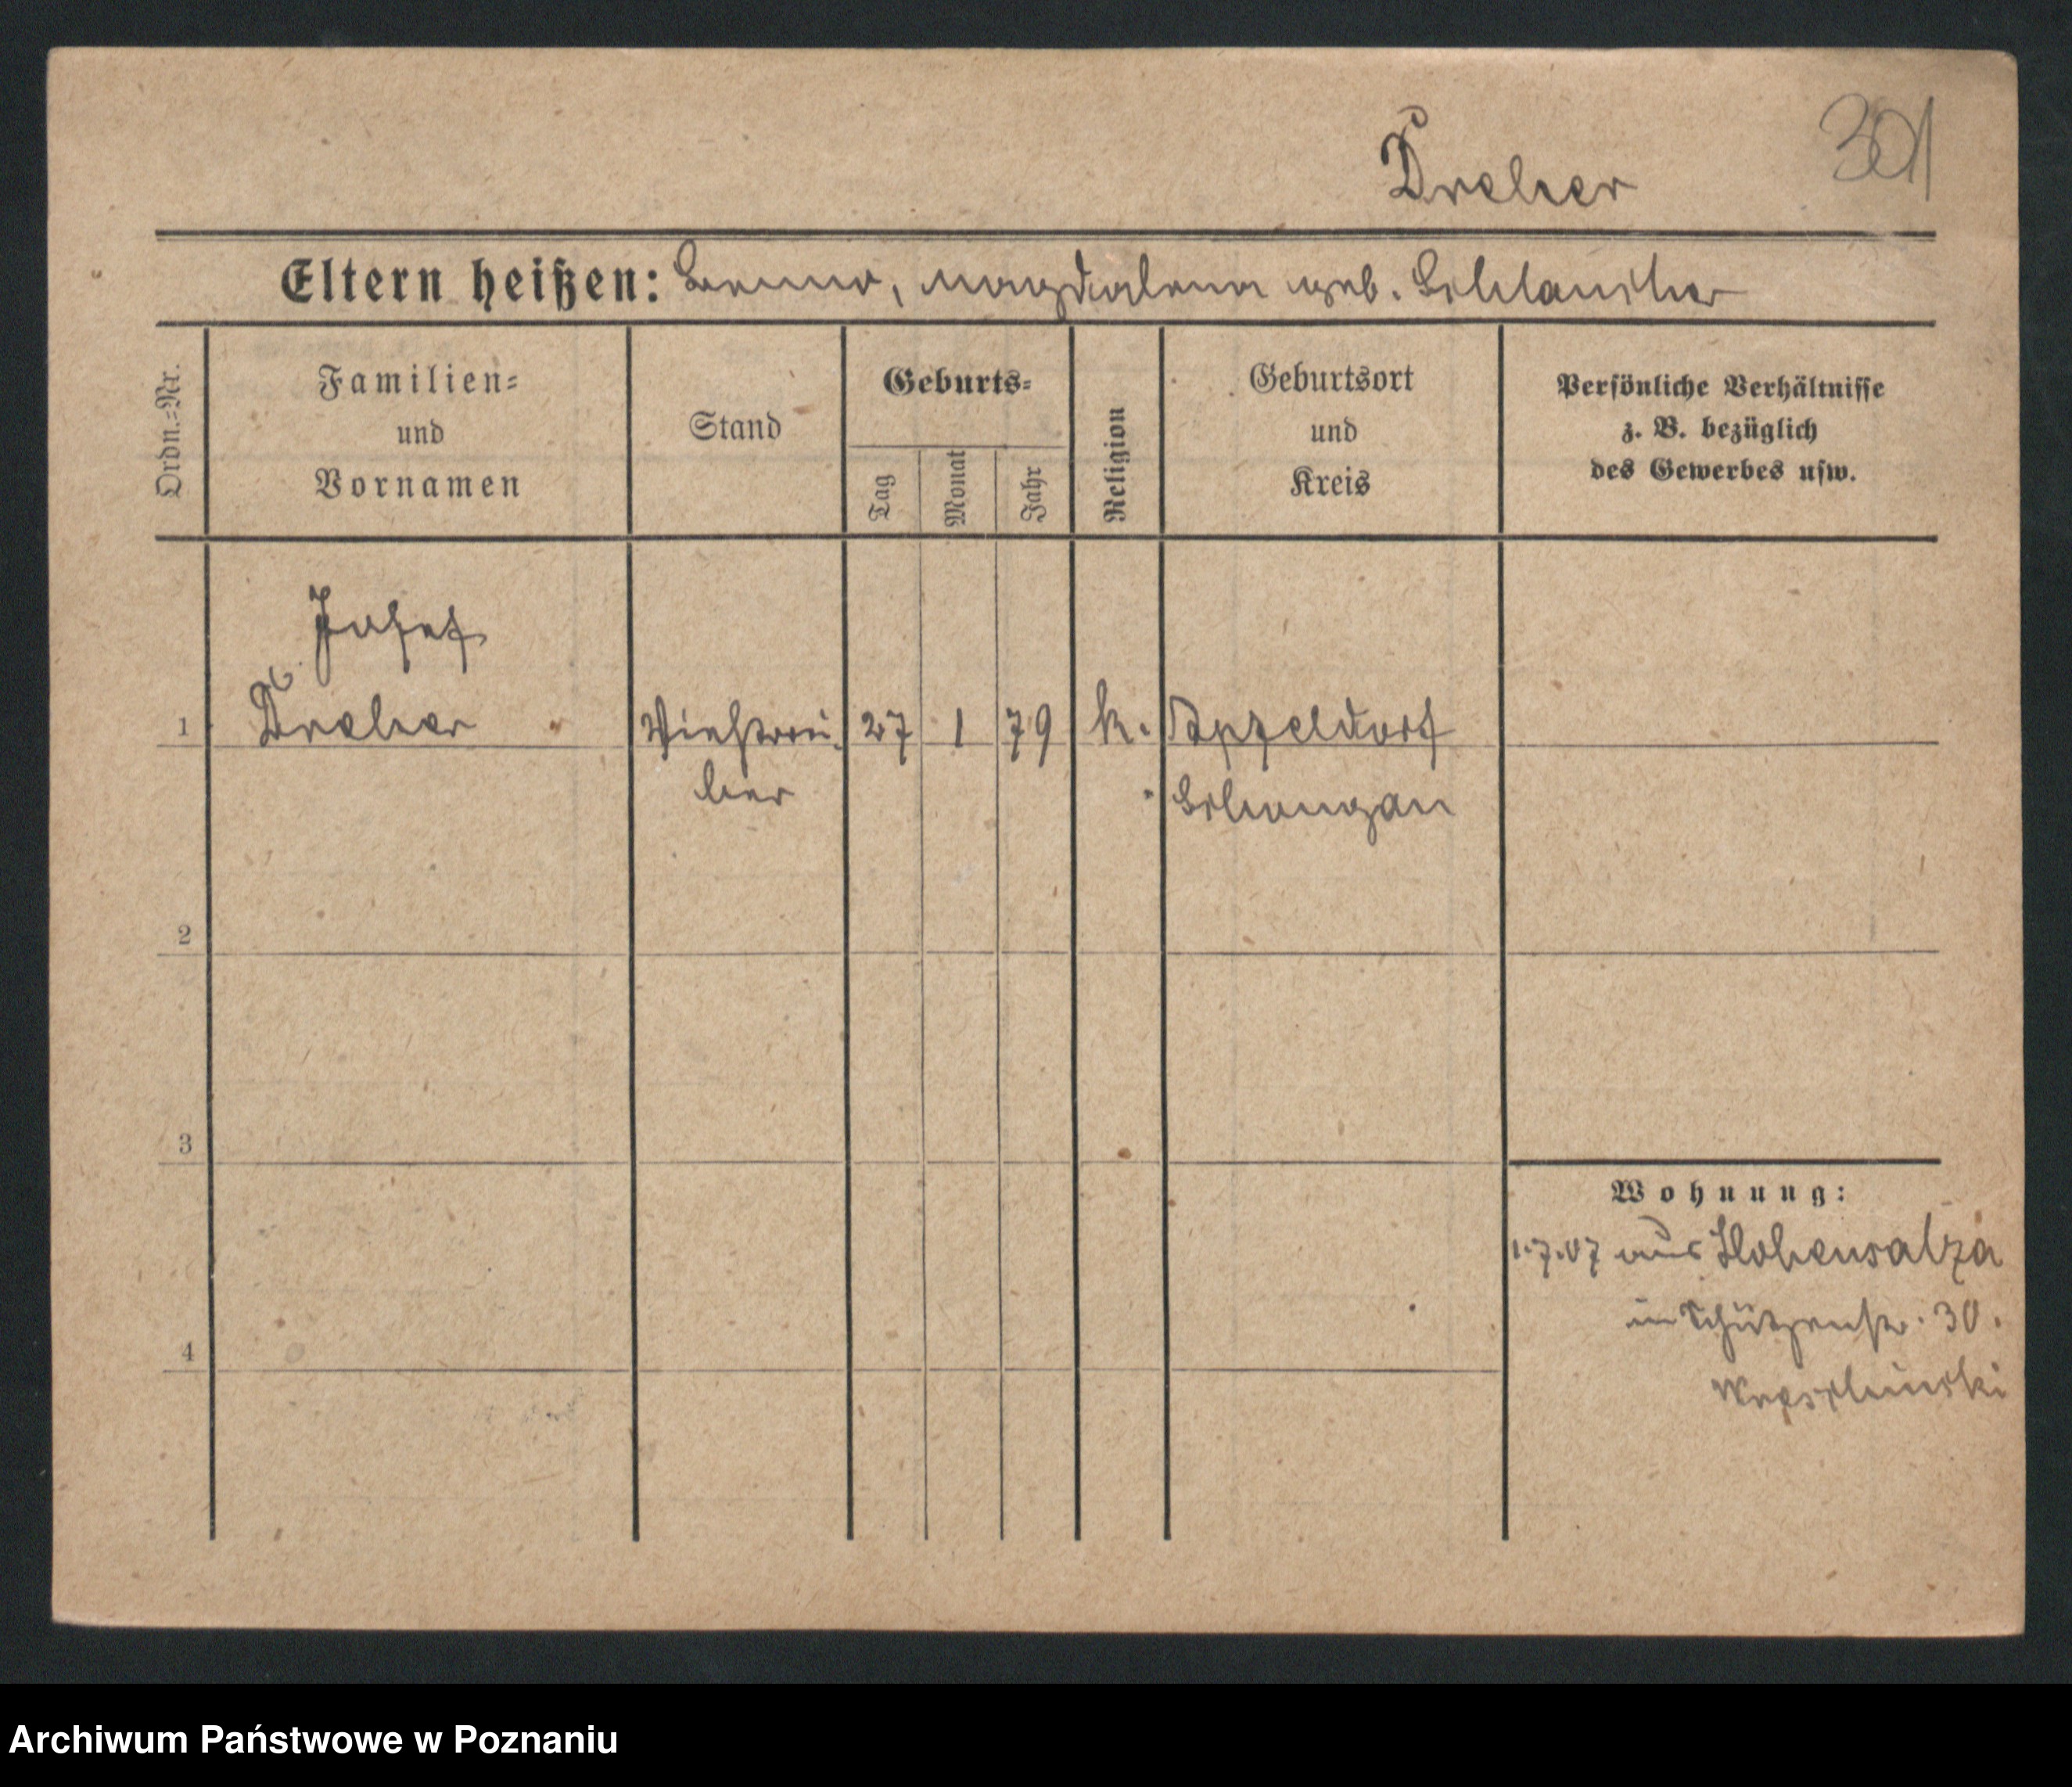 301
Dreher
Eltern heißen: Benno, Magdalena geb.
Ordn.=Nr.
Familien= und Vornamen
Stand
Geburts=
Tag
Monat
Jahr
Religion
Geburtsort und Kreis
Persönliche Verhältnisse z. B. bezüglich des Gewerbes usw.
Josef
1 Dreher 27 1 79 k. Apfeldorf
Schongau
2
3
Wohnung:
1.7.07 aus Hohensalza
in Schützenstr. 30.
4
Archiwum Państwowe w Poznaniu